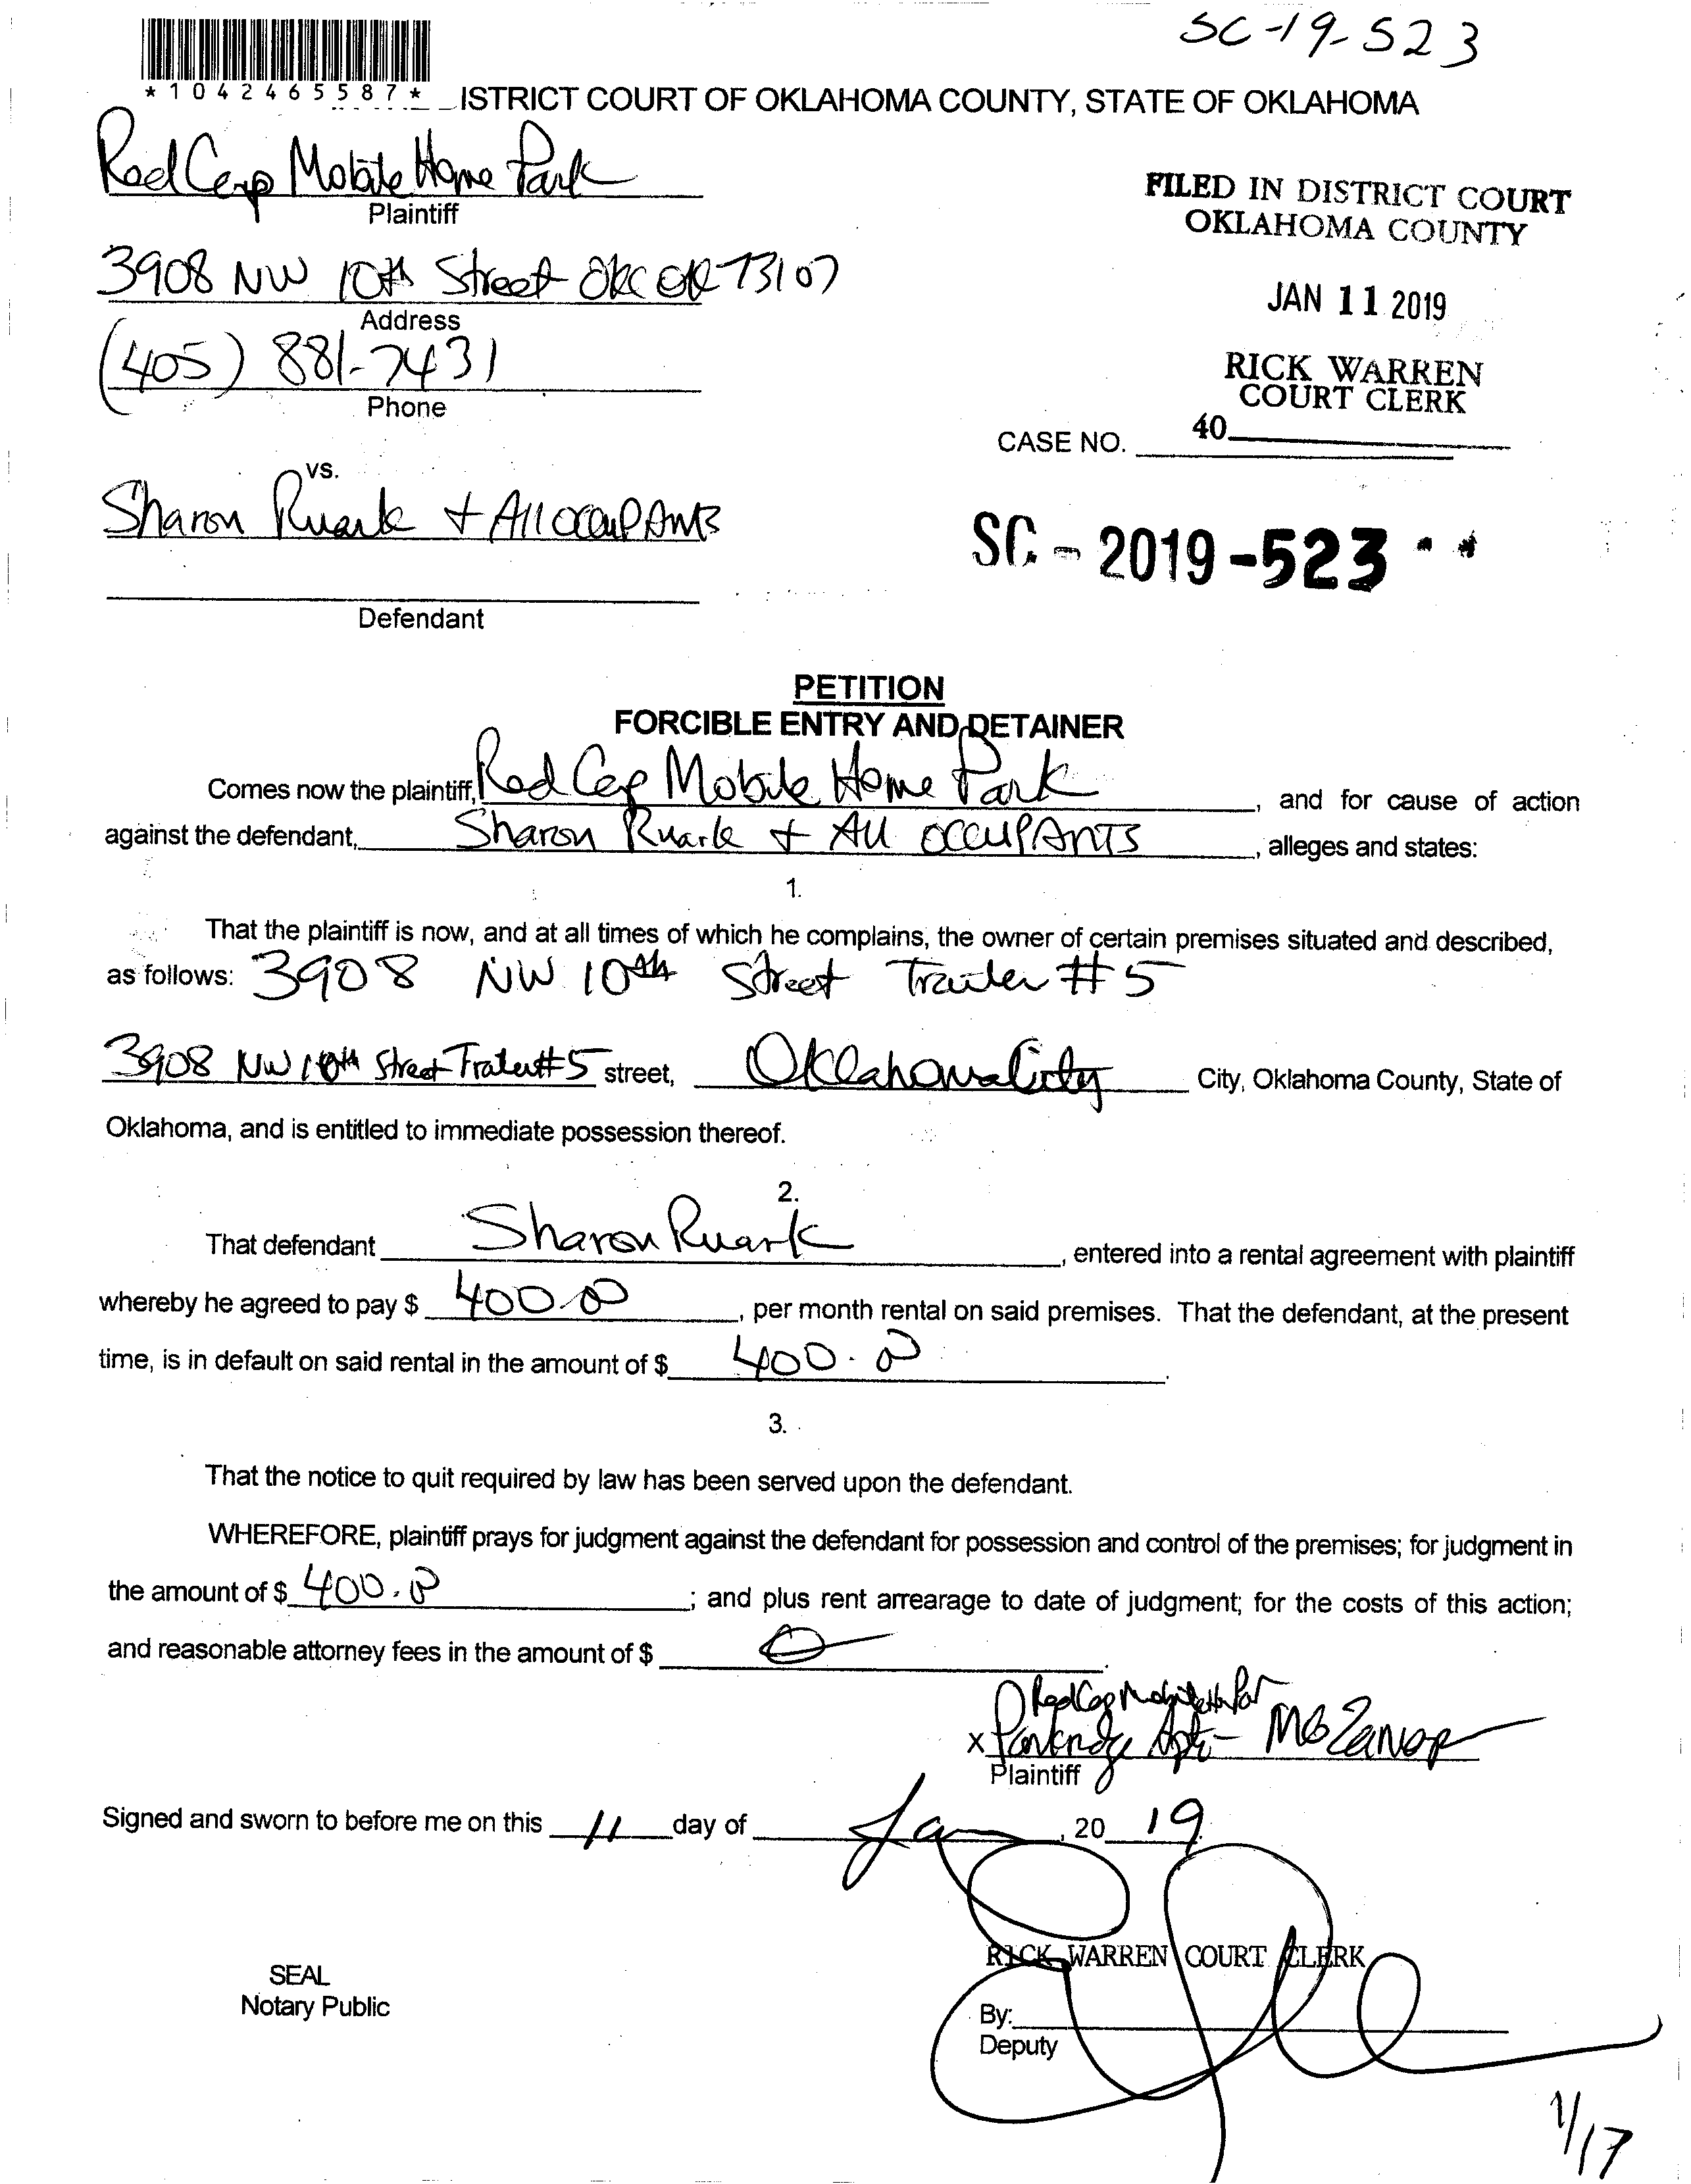 SC-19-523
*1042465587*
ISTRICT COURT OF OKLAHOMA COUNTY, STATE OF OKLAHOMA
Red Cap Mobile Home Park
Plaintiff
FILED IN DISTRICT COURT
OKLAHOMA COUNTY
3908 NW 10th Street OKC OK 73107
Address
JAN 11 2019
(405) 881-7431
Phone
RICK WARREN
COURT CLERK
40
CASE NO.
vs.
Sharon Ruark + All occupants
SC - 2019 - 523
Defendant
PETITION
FORCIBLE ENTRY AND DETAINER
Comes now the plaintiff, Red Cap Mobile Home Park, and for cause of action
against the defendant, Sharon Ruark + All occupANTS, alleges and states:
1.
That the plaintiff is now, and at all times of which he complains, the owner of certain premises situated and described,
as follows: 3908 NW 10th Street Trailer #5
3908 NW 10th Street Trailer #5 street, Oklahoma City City, Oklahoma County, State of
Oklahoma, and is entitled to immediate possession thereof.
2.
That defendant Sharon Ruark, entered into a rental agreement with plaintiff
whereby he agreed to pay $ 400.00, per month rental on said premises. That the defendant, at the present
time, is in default on said rental in the amount of $ 400.00.
3.
That the notice to quit required by law has been served upon the defendant.
WHEREFORE, plaintiff prays for judgment against the defendant for possession and control of the premises; for judgment in
the amount of $ 400.00; and plus rent arrearage to date of judgment; for the costs of this action;
and reasonable attorney fees in the amount of $ 0.
Red Cap Mobile
x Parkridge Apts -
Plaintiff
Signed and sworn to before me on this 11 day of Jan, 20 19.
RICK WARREN COURT CLERK
SEAL
Notary Public
By:
Deputy
1/17